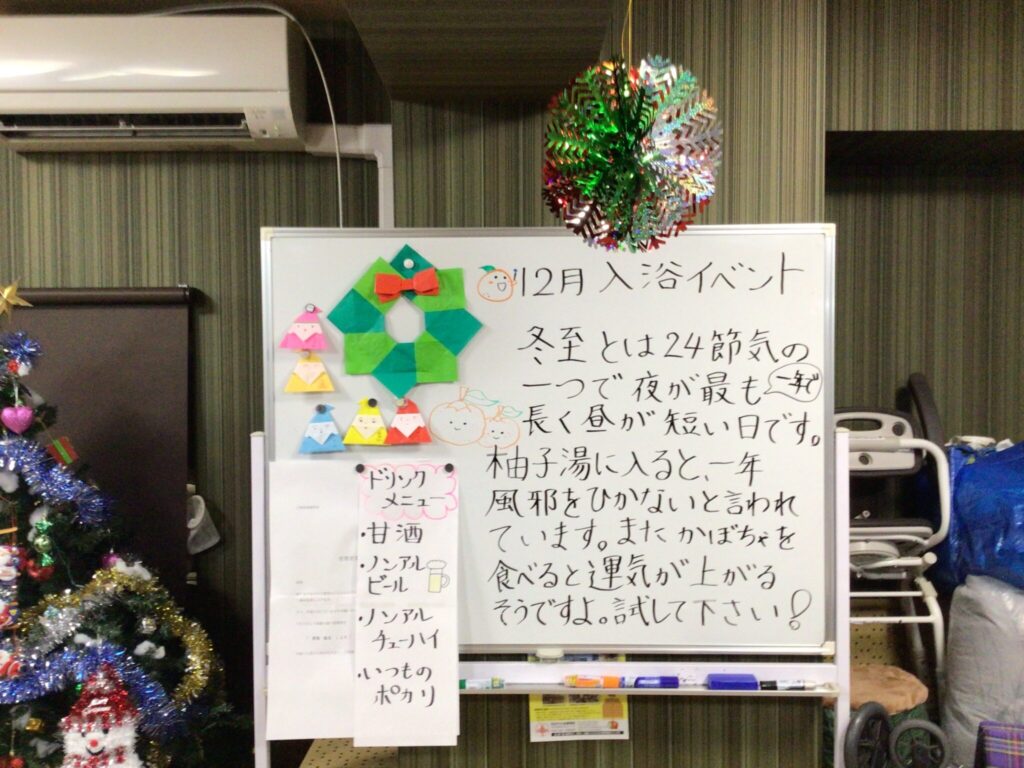 12月入浴イベント
冬至とは24節気の
一つで夜が最も一年で
長く昼が短い日です。
柚子湯に入ると、一年
風邪をひかないと言われ
ています。またかぼちゃを
食べると運気が上がる
そうですよ。試して下さい!
ドリンク
メニュー
・甘酒
・ノンアル
ビール
・ノンアル
チューハイ
・いつもの
ポカリ